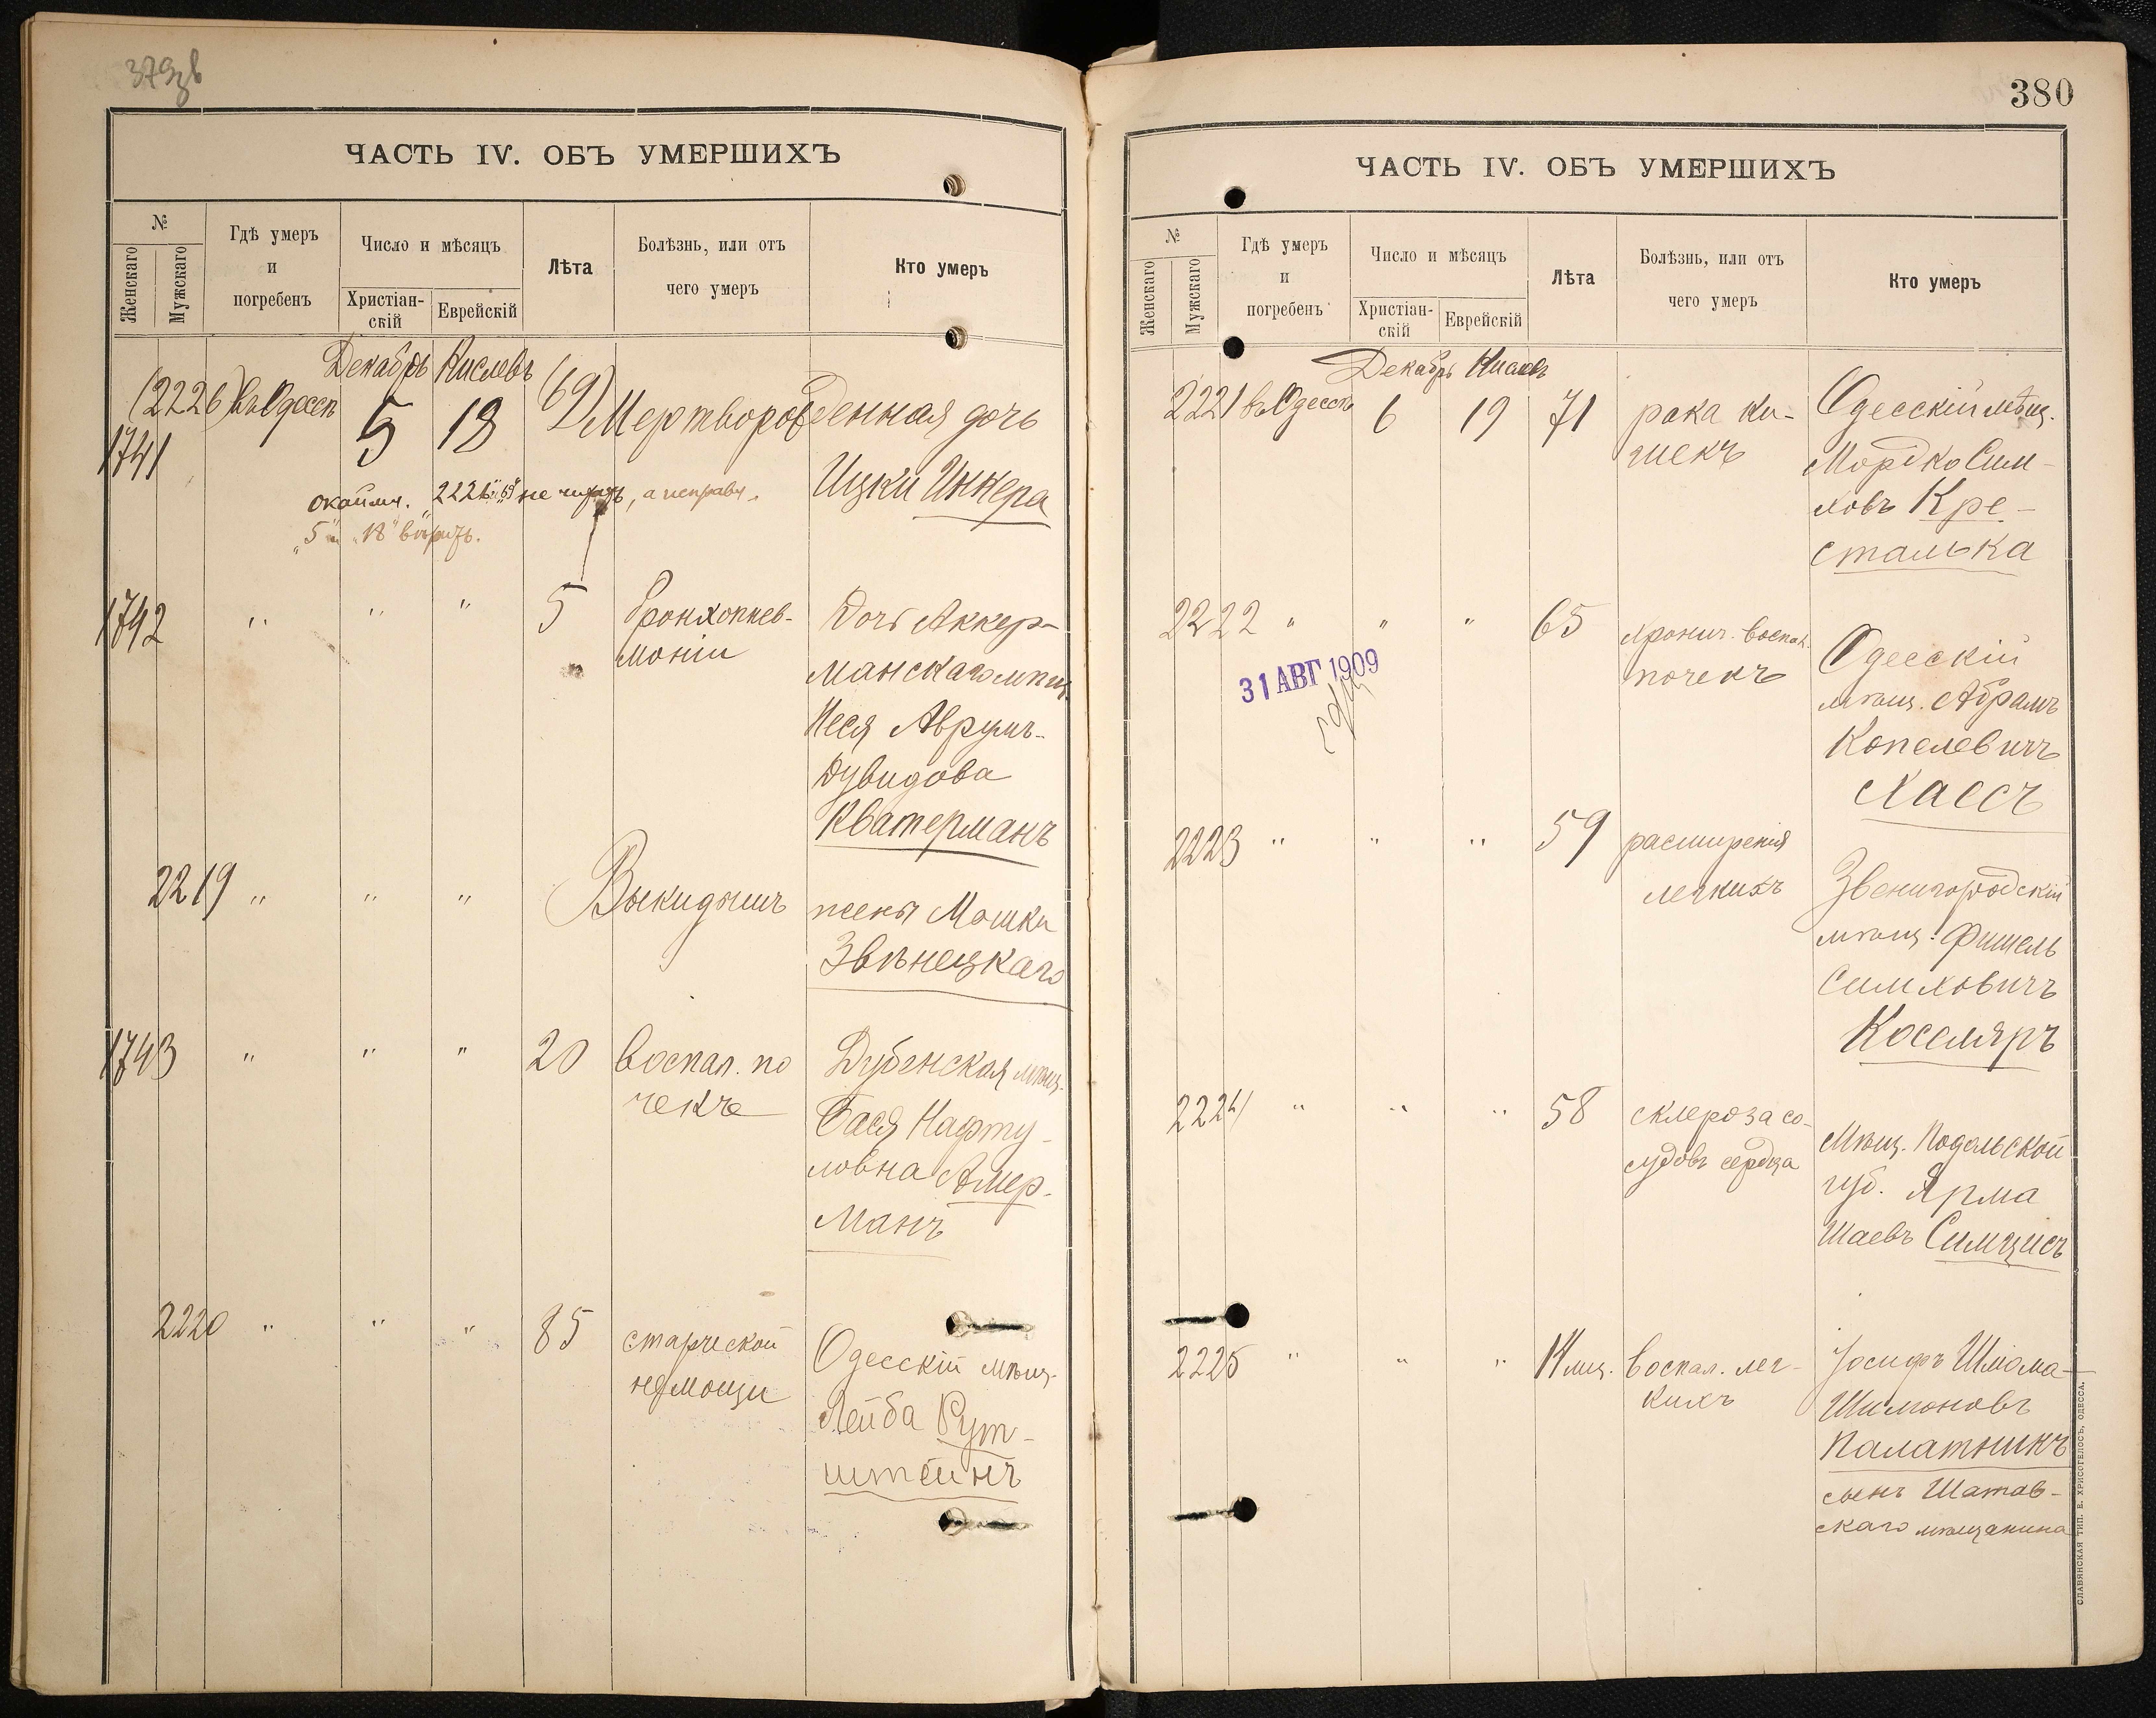 379зв
ЧАСТЬ IV. ОБЪ УМЕРШИХЪ
№
Женскаго
Мужскаго
Гдѣ умеръ
и
погребенъ
Число и мѣсяцъ
Христіан-
скій
Еврейскій
Лѣта
Болѣзнь, или отъ
чего умеръ
Кто умеръ
Декабрь Кислевъ
(2226) въ Одессѣ 5 18 (69) Мертворожденная дочь
1741
Ицки Инкера
окаймл. 2226 и 69 не читать, а исправл.
"5" и "18" вѣрить.
1742 " " " 5 бронхопнев-
моніи
Дочь Аккер-
манскаго мѣщ.
Песя Аврумъ-
Дувидова
Кватерманъ
2219 " " " Выкидышъ жены Мошки
Звѣнецкаго
1743 " " " 20 воспал. по
чекъ
Дубенская мѣщ.
Бася Нафту-
ловна Амер-
манъ
2220 " " " 85 старческой
немощи
Одесскій мѣщ.
Лейба Рут-
штейнъ
380
ЧАСТЬ IV. ОБЪ УМЕРШИХЪ
№
Женскаго
Мужскаго
Гдѣ умеръ
и
погребенъ
Число и мѣсяцъ
Христіан-
скій
Еврейскій
Лѣта
Болѣзнь, или отъ
чего умеръ
Кто умеръ
Декабрь Кислевъ
2221 въ Одессѣ 6 19 71 рака ки-
шекъ
Одесскій мѣщ.
Мордко Сим-
ховъ Кре-
сталька
2222 " " " 65 хронич. воспал.
почекъ
Одесскій
мѣщ. Абрамъ
Копелевичъ
Хаесъ
31 АВГ 1909
2223 " " " 59 расширенія
легкихъ
Звенигородскій
мѣщ. Фишель
Симховичъ
Косс​ляръ
2224 " " " 58 склероза со-
судовъ сердца
Мѣщ. Подольской
губ. Ярма
Шаевъ Симцисъ
2225 " " " 14 мц. воспал. лег-
кихъ
Іосифъ Шлома-
Шимоновъ
Палатникъ
сынъ Шатав-
скаго мѣщанина
СЛАВЯНСКАЯ ТИП. Е. ХРИСОГЕЛОСЪ, ОДЕССА.